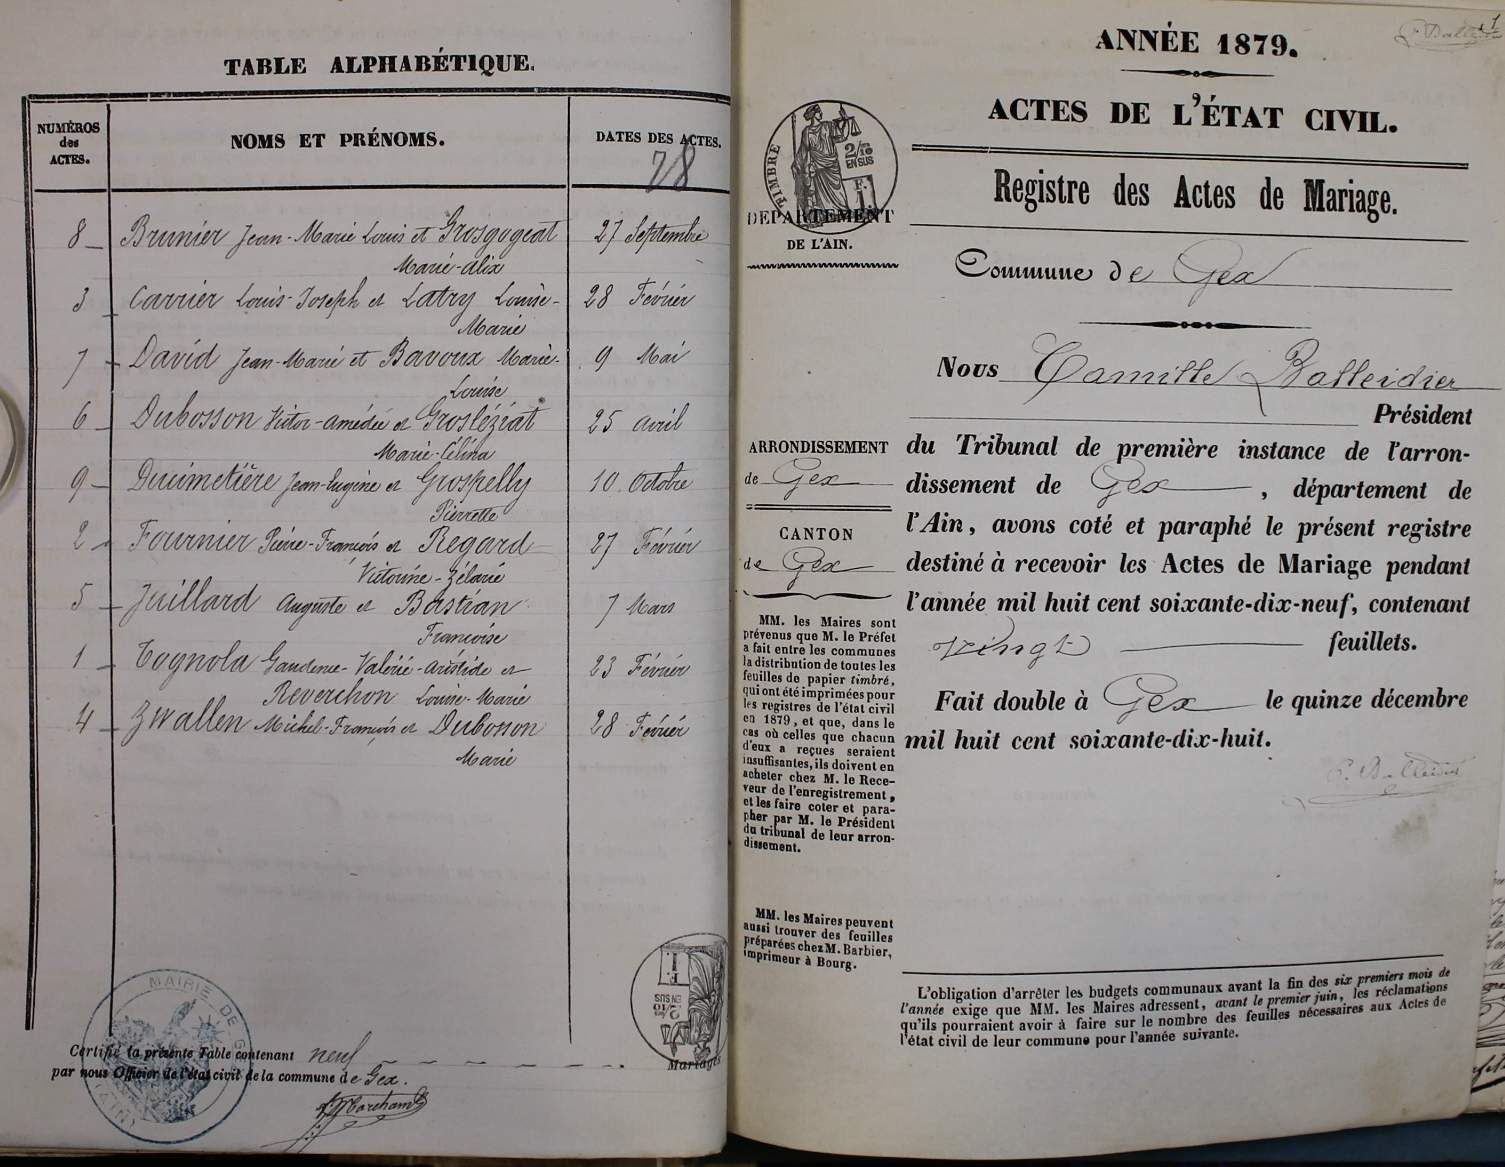 TABLE ALPHABÉTIQUE.
NUMÉROS
des
ACTES.
NOMS ET PRÉNOMS.
DATES DES ACTES.
78
8 Brunier Jean-Marie Louis et Grosgogeat 27 Septembre
Marie-Alix
3 Carrier Louis-Joseph et Latry Louise- 28 Février
Marie
7 David Jean-Marie et Bavoux Marie- 9 Mai
Louise
6 Dubosson Victor-Amédée et Grosléziat 25 avril
Marie-Célina
9 Ducimetière Jean-Eugène et Grospelly 10 Octobre
Pierrette
2 Fournier Pierre-François et Regard 27 Février
Victorine-Zélavie
5 Juillard Auguste et Bastian 7 Mars
Françoise
1 Tognola Gaudence-Valérie-Aristide et 23 Février
Reverchon Louise-Marie
4 Zwallen Michel-François et Dubosson 28 Février
Marie
MAIRIE DE G
(AIN)
Certifié la présente Table contenant neuf
par nous Officier de l'état civil de la commune de Gex.
Marchand
F. 1.
2/10
EN SUS
Mariages
1
C. Balleidier
ANNÉE 1879.
ACTES DE L'ÉTAT CIVIL.
TIMBRE
2/10
EN SUS
F. 1.
DÉPARTEMENT
DE L'AIN.
Registre des Actes de Mariage.
Commune de Gex
Nous Camille Balleidier
Président
ARRONDISSEMENT
de Gex
CANTON
de Gex
du Tribunal de première instance de l'arron-
dissement de Gex, département de
l'Ain, avons coté et paraphé le présent registre
destiné à recevoir les Actes de Mariage pendant
l'année mil huit cent soixante-dix-neuf, contenant
vingt feuillets.
Fait double à Gex le quinze décembre
mil huit cent soixante-dix-huit.
C. Balleidier
MM. les Maires sont
prévenus que M. le Préfet
a fait entre les communes
la distribution de toutes les
feuilles de papier timbré,
qui ont été imprimées pour
les registres de l'état civil
en 1879, et que, dans le
cas où celles que chacun
d'eux a reçues seraient
insuffisantes, ils doivent en
acheter chez M. le Rece-
veur de l'enregistrement,
et les faire coter et para-
pher par M. le Président
du tribunal de leur arron-
dissement.
MM. les Maires peuvent
aussi trouver des feuilles
préparées chez M. Barbier,
imprimeur à Bourg.
L'obligation d'arrêter les budgets communaux avant la fin des six premiers mois de
l'année exige que MM. les Maires adressent, avant le premier juin, les réclamations
qu'ils pourraient avoir à faire sur le nombre des feuilles nécessaires aux Actes de
l'état civil de leur commune pour l'année suivante.